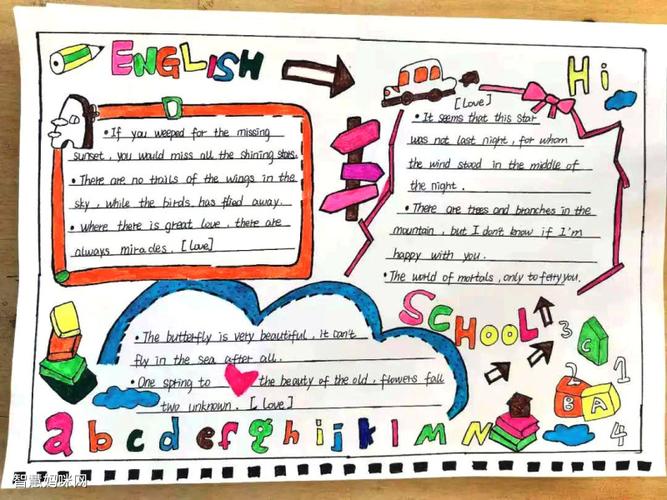 ENGLISH
Hi
• If you weeped for the missing
sunset, you would miss all the shining stars.
• There are no trails of the wings in the
sky, while the birds has flied away.
• Where there is great love, there are
always miracles. [Love]
[Love]
• It seems that this star
was not last night, for whom
the wind stood in the middle of
the night.
• There are trees and branches in the
mountain, but I don't know if I'm
happy with you.
• The world of mortals, only to ferry you.
SCHOOL
• The butterfly is very beautiful, it can't
fly in the sea after all.
• One spring to the beauty of the old, flowers fall
two unknown. [Love]
3 C
2 1
B A
4
a b c d e f g h i j k l M N
智慧妈咪网